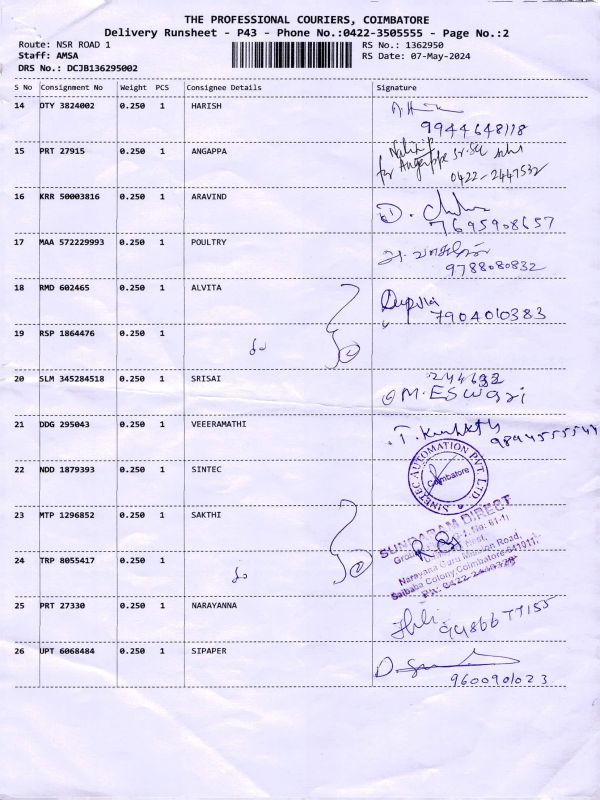 THE PROFESSIONAL COURIERS, COIMBATORE
Delivery Runsheet - P43 - Phone No.:0422-3505555 - Page No.:2
Route: NSR ROAD 1 RS No.: 1362950
Staff: AMSA RS Date: 07-May-2024
DRS No.: DCJB136295002
S No Consignment No Weight PCS Consignee Details Signature
14 DTY 3824002 0.250 1 HARISH
9944648118
15 PRT 27915 0.250 1 ANGAPPA
for Angappa
0422-2447532
16 KRR 50003816 0.250 1 ARAVIND D.
7695908657
17 MAA 572229993 0.250 1 POULTRY
9788080832
18 RMD 602465 0.250 1 ALVITA
7904010383
19 RSP 1864476 0.250 1 do
20 SLM 345284518 0.250 1 SRISAI 244632
M.ESwari
21 DDG 295043 0.250 1 VEEERAMATHI T.
9894555544
22 NDD 1879393 0.250 1 SINTEC SINETEC AUTOMATION PVT. LTD. Coimbatore
23 MTP 1296852 0.250 1 SAKTHI SUNDARAM DIRECT
24 TRP 8055417 0.250 1 do
Narayana Guru Mission Road,
Saibaba Colony, Coimbatore-641011
25 PRT 27330 0.250 1 NARAYANNA
9486677155
26 UPT 6068484 0.250 1 SIPAPER D.
9600901023